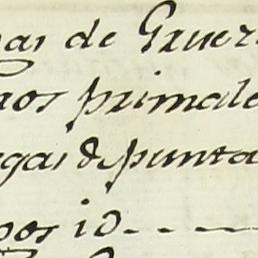 nas de Gruer
nos primale
gas de punta
pos id